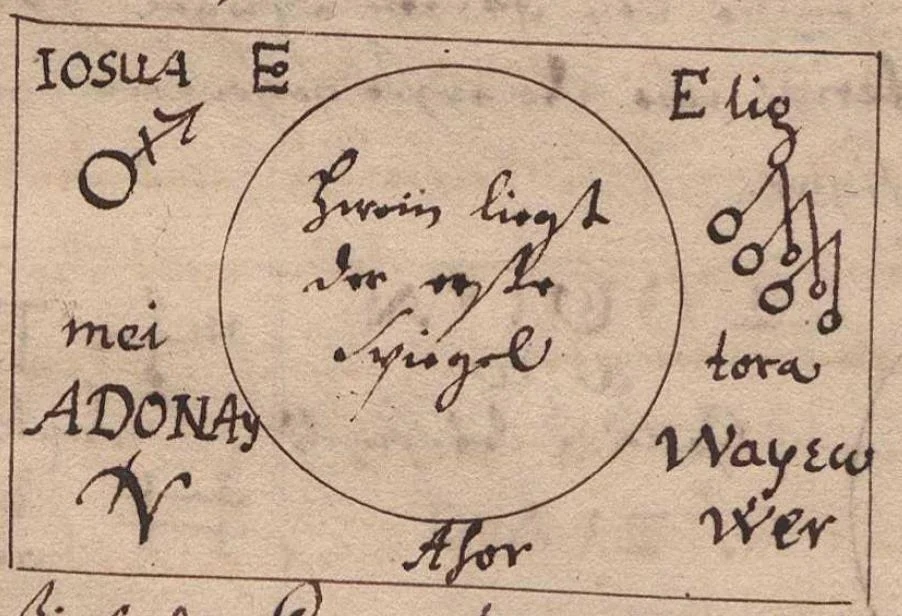 IOSUA E
Elig
Herein liegt
der erste
Spiegel
mei
ADONAy
tora
Wayew
Wer
Ahor